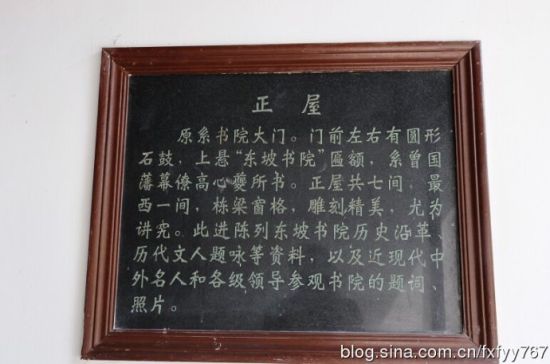 正屋
原系书院大门。门前左右有圆形
石鼓，上悬“东坡书院”匾额，系曾国
藩幕僚高心夔所书。正屋共七间，最
西一间，栋梁窗格，雕刻精美，尤为
讲究。此进陈列东坡书院历史沿革、
历代文人题咏等资料，以及近现代中
外名人和各级领导参观书院的题词、
照片。
blog.sina.com.cn/fxfyy767